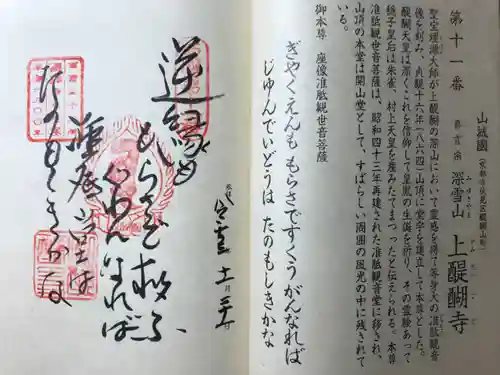 第十一番
山城國（京都市伏見区醍醐山町）
真言宗 深雪山 上醍醐寺
聖宝理源大師が上醍醐の深山において霊感を得て等身大の准胝観音
像を刻み、貞観十六年（八六四）山頂に堂宇を建立して本尊とした。
醍醐天皇は深くこれを信仰して皇胤の生誕を祈り、その霊験あって
穏子皇后は朱雀、村上天皇を産みたてまつったと伝えられる。本尊
准胝観世音菩薩は、昭和四十三年再建された准胝観音堂に移され、
山頂の本堂は開山堂として、すばらしい周囲の風光の中に残されて
いる。
御本尊 座像准胝観世音菩薩
ぎやくえんも もらさですくう がんなれば
じゅんでいどうは たのもしきかな
逆縁も
もらさで救ふ
ぐわんなれば
准胝堂は
たのもしきかな